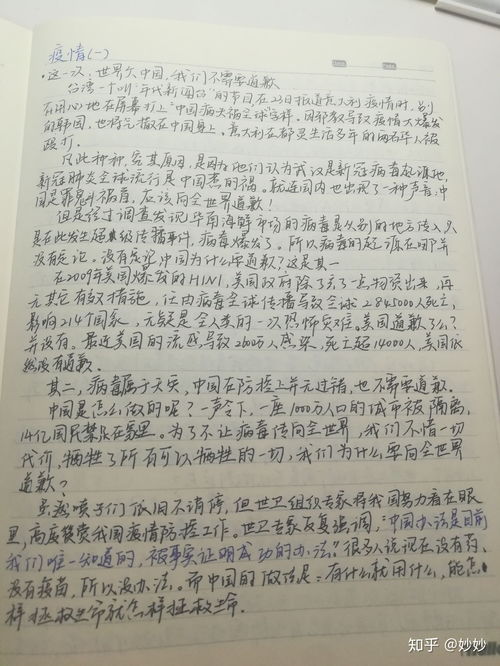 疫情(一)
·这一次,世界欠中国,我们不需要道歉
台湾一个叫"年代新闻台"的节目在23日报道意大利疫情时,别
有用心地在屏幕打上"中国病大祸全球"字样,因邪教导致疫情大爆发
的韩国,也将气撒在中国身上,意大利在都灵生活多年的两名华人被
殴打。
凡此种种,究其原因,是因为他们认为武汉是新冠病毒起源地,
新冠肺炎全球流行是中国惹的祸。就连国内也出现了一种声音:中
国是罪魁祸首,应该向全世界道歉!
但是经过调查发现,华南海鲜市场的病毒是从别的地方传入,只
是在此发生超级传播事件,病毒爆发了。所以病毒的起源在哪并
没有定论。没有定论中国为什么要道歉?这是其一
在2009年美国爆发的H1N1,美国政府除了亏了一点物资出来,再
无其它有效措施,任由病毒全球传播导致全球284500人死亡,
影响214个国家,无疑是全人类的一次恐怖灾难。美国道歉了么?
并没有。最近美国的流感,导致2600万人感染,死亡超14000人,美国依
然没有道歉。
其二,病毒属于天灾,中国在防控上并无过错,也不需要道歉。
中国是怎么做的呢?一声令下,一座1000万人口的城市被隔离,
14亿国民禁足在家里。为了不让病毒传向全世界,我们不惜一切
代价,牺牲了所有可以牺牲的一切,我们为什么要向全世界
道歉?
虽然喷子们依旧不消停,但世卫组织专家将我国努力看在眼
里,高度赞赏我国疫情防控工作。世卫专家反复强调,"中国办法是目前
我们唯一知道的,被事实证明成功的办法。"很多人说现在没有药、
没有疫苗,所以没办法。而中国的做法是:有什么就用什么,能怎
样拯救生命就怎样拯救生命.
知乎 @妙妙